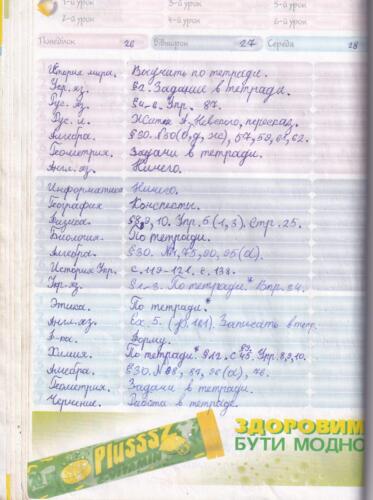 1-й урок 3-й урок 5-й урок
2-й урок 4-й урок 6-й урок
Понеділок 26 Вівторок 27 Середа 28
История мира. Выучить по тетради.
Укр. яз. §2. Задание в тетради.
Рус. яз. §4-6. Упр. 87.
Рус. л. Житие А. Невского, пересказ.
Алгебра. §30. №50(в,д,ж), 57, 59, 61, 62.
Геометрия. Задачи в тетради.
Англ. яз. Ничего.
Информатика Ничего.
География Конспекты.
Физика. §8,9,10. Упр. 5(1,3). Стр. 25.
Биология. По тетради.
Алгебра. §30. №1,75,90,95(а).
История Укр. с. 119-121. с. 138.
Укр. яз. §1-3. По тетради.* Впр. 24.
Этика. По тетради*
Англ. яз. Ex. 5. (p. 161). Записать в тетр.
Ф-ра. Форму.
Химия. По тетради.* §12. с 45. Упр. 8,9,10.
Алгебра. §30. № 88, 89, 96(а), 76.
Геометрия. Задачи в тетради.
Черчение. Работа в тетради.
Plusssz
ЗДОРОВИМ
БУТИ МОДНО